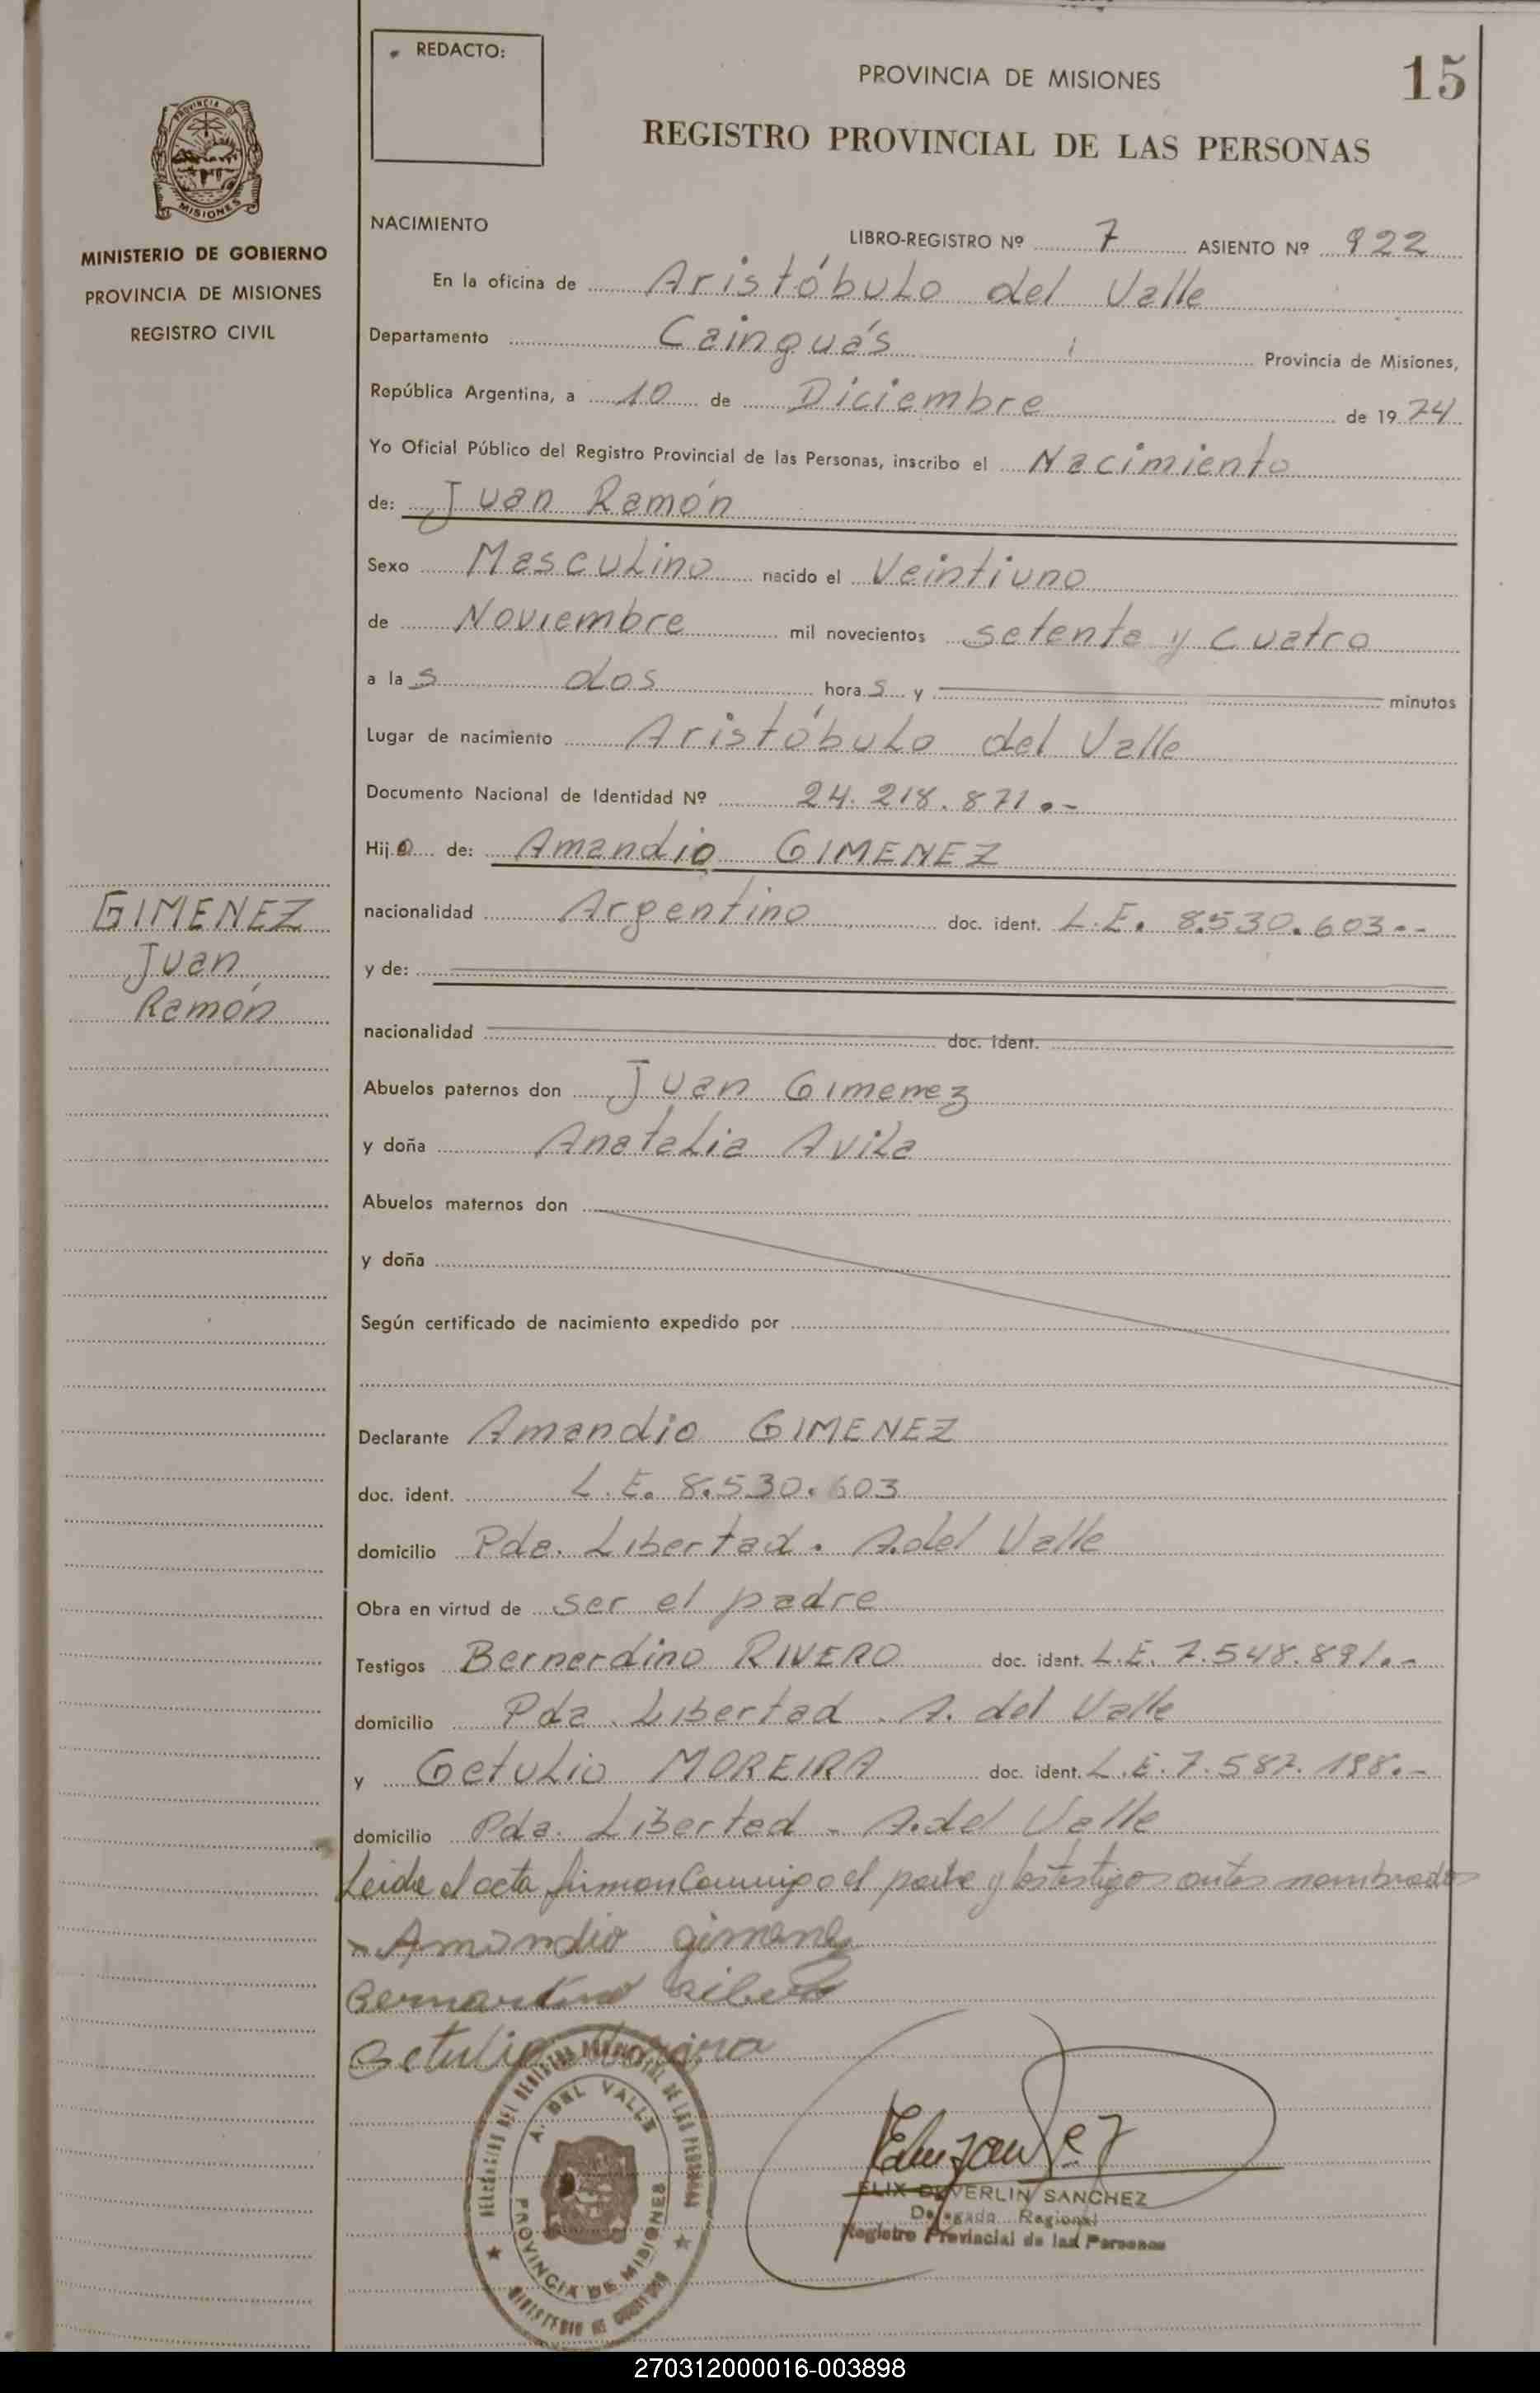 REDACTO:
PROVINCIA DE MISIONES
15
REGISTRO PROVINCIAL DE LAS PERSONAS
PROVINCIA DE
MISIONES
MINISTERIO DE GOBIERNO
PROVINCIA DE MISIONES
REGISTRO CIVIL
GIMENEZ
Juan
Ramón
NACIMIENTO
LIBRO-REGISTRO Nº 7 ASIENTO Nº 922
En la oficina de Aristóbulo del Valle
Departamento Cainguás Provincia de Misiones,
República Argentina, a 10 de Diciembre de 1974
Yo Oficial Público del Registro Provincial de las Personas, inscribo el Nacimiento
de: Juan Ramón
Sexo Masculino nacido el Veintiuno
de Noviembre mil novecientos setenta y cuatro
a las dos horas y minutos
Lugar de nacimiento Aristóbulo del Valle
Documento Nacional de Identidad Nº 24.218.871.-
Hijo de: Amandio GIMENEZ
nacionalidad Argentino doc. ident. L.E. 8.530.603.-
y de:
nacionalidad doc. ident.
Abuelos paternos don Juan Gimenez
y doña Anatalia Avila
Abuelos maternos don
y doña
Según certificado de nacimiento expedido por
Declarante Amandio GIMENEZ
doc. ident. L.E. 8.530.603
domicilio Pda. Libertad. A.del Valle
Obra en virtud de ser el padre
Testigos Bernardino RIVERO doc. ident. L.E. 7.548.891.-
domicilio Pda. Libertad. A. del Valle
y Getulio MOREIRA doc. ident. L.E. 7.587.198.-
domicilio Pda. Libertad - A.del Valle
Leida el acta firman conmigo el padre y los testigos antes nombrados
Amandio gimenez
Bernardino Ribero
Getulio
A. DEL VALLE
PROVINCIA DE MISIONES
MINISTERIO DE GOBIERNO
FELIX DEVERLIN SANCHEZ
Delegado Regional
Registro Provincial de las Personas
270312000016-003898